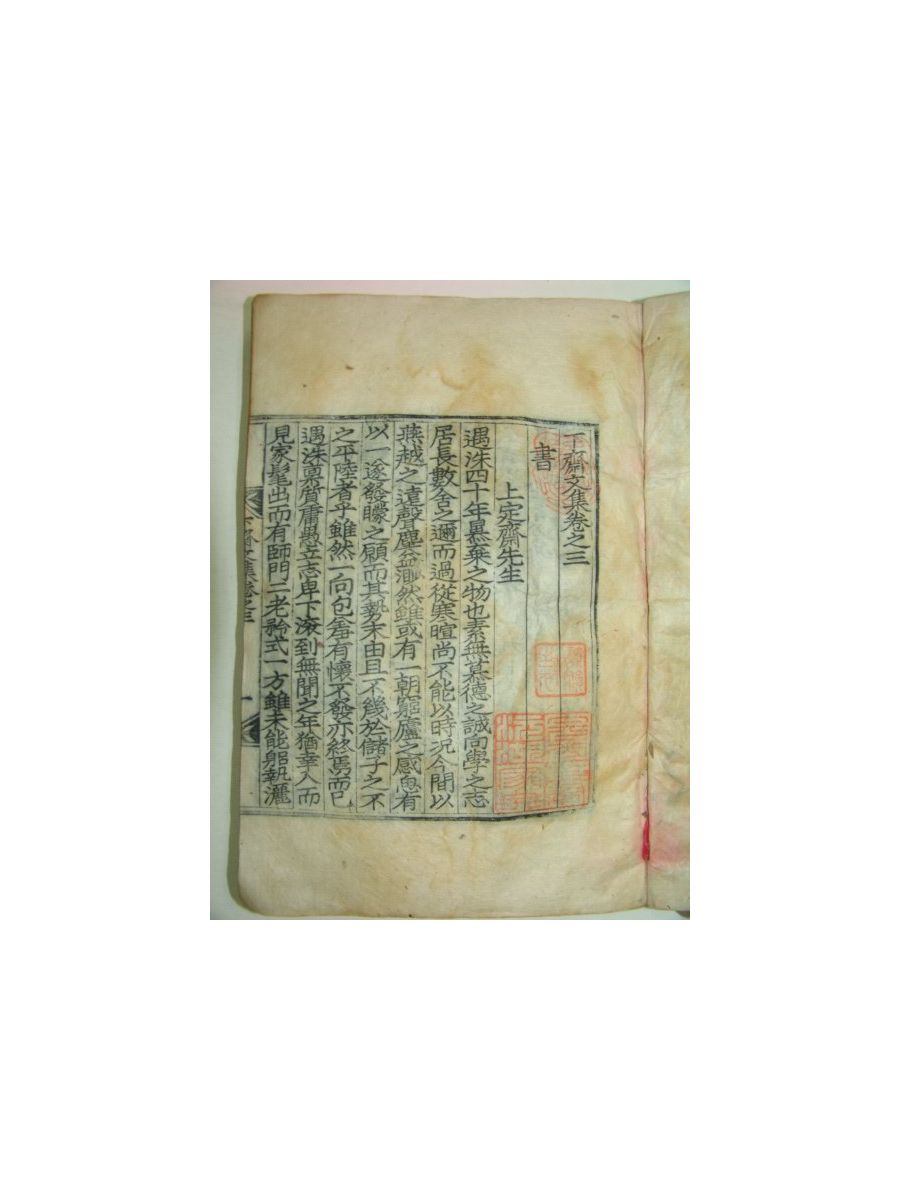 下齋文集卷之三
書
上定齋先生
遇洙四十年暴棄之物也素無慕德之誠向學之志
居長數舍之邇而過從寒暄尚不能以時況今間以
燕越之遠聲塵益渺然雖或有一朝窮廬之感思有
以一遂發矇之願而其勢末由且不幾於儲子之不
之平陸者乎雖然一向包羞有懷不發亦終焉而已
遇洙稟質庸愚立志卑下滾到無聞之年猶幸入而
見家髦出而有師門二老矜式一方雖未能躬執灑